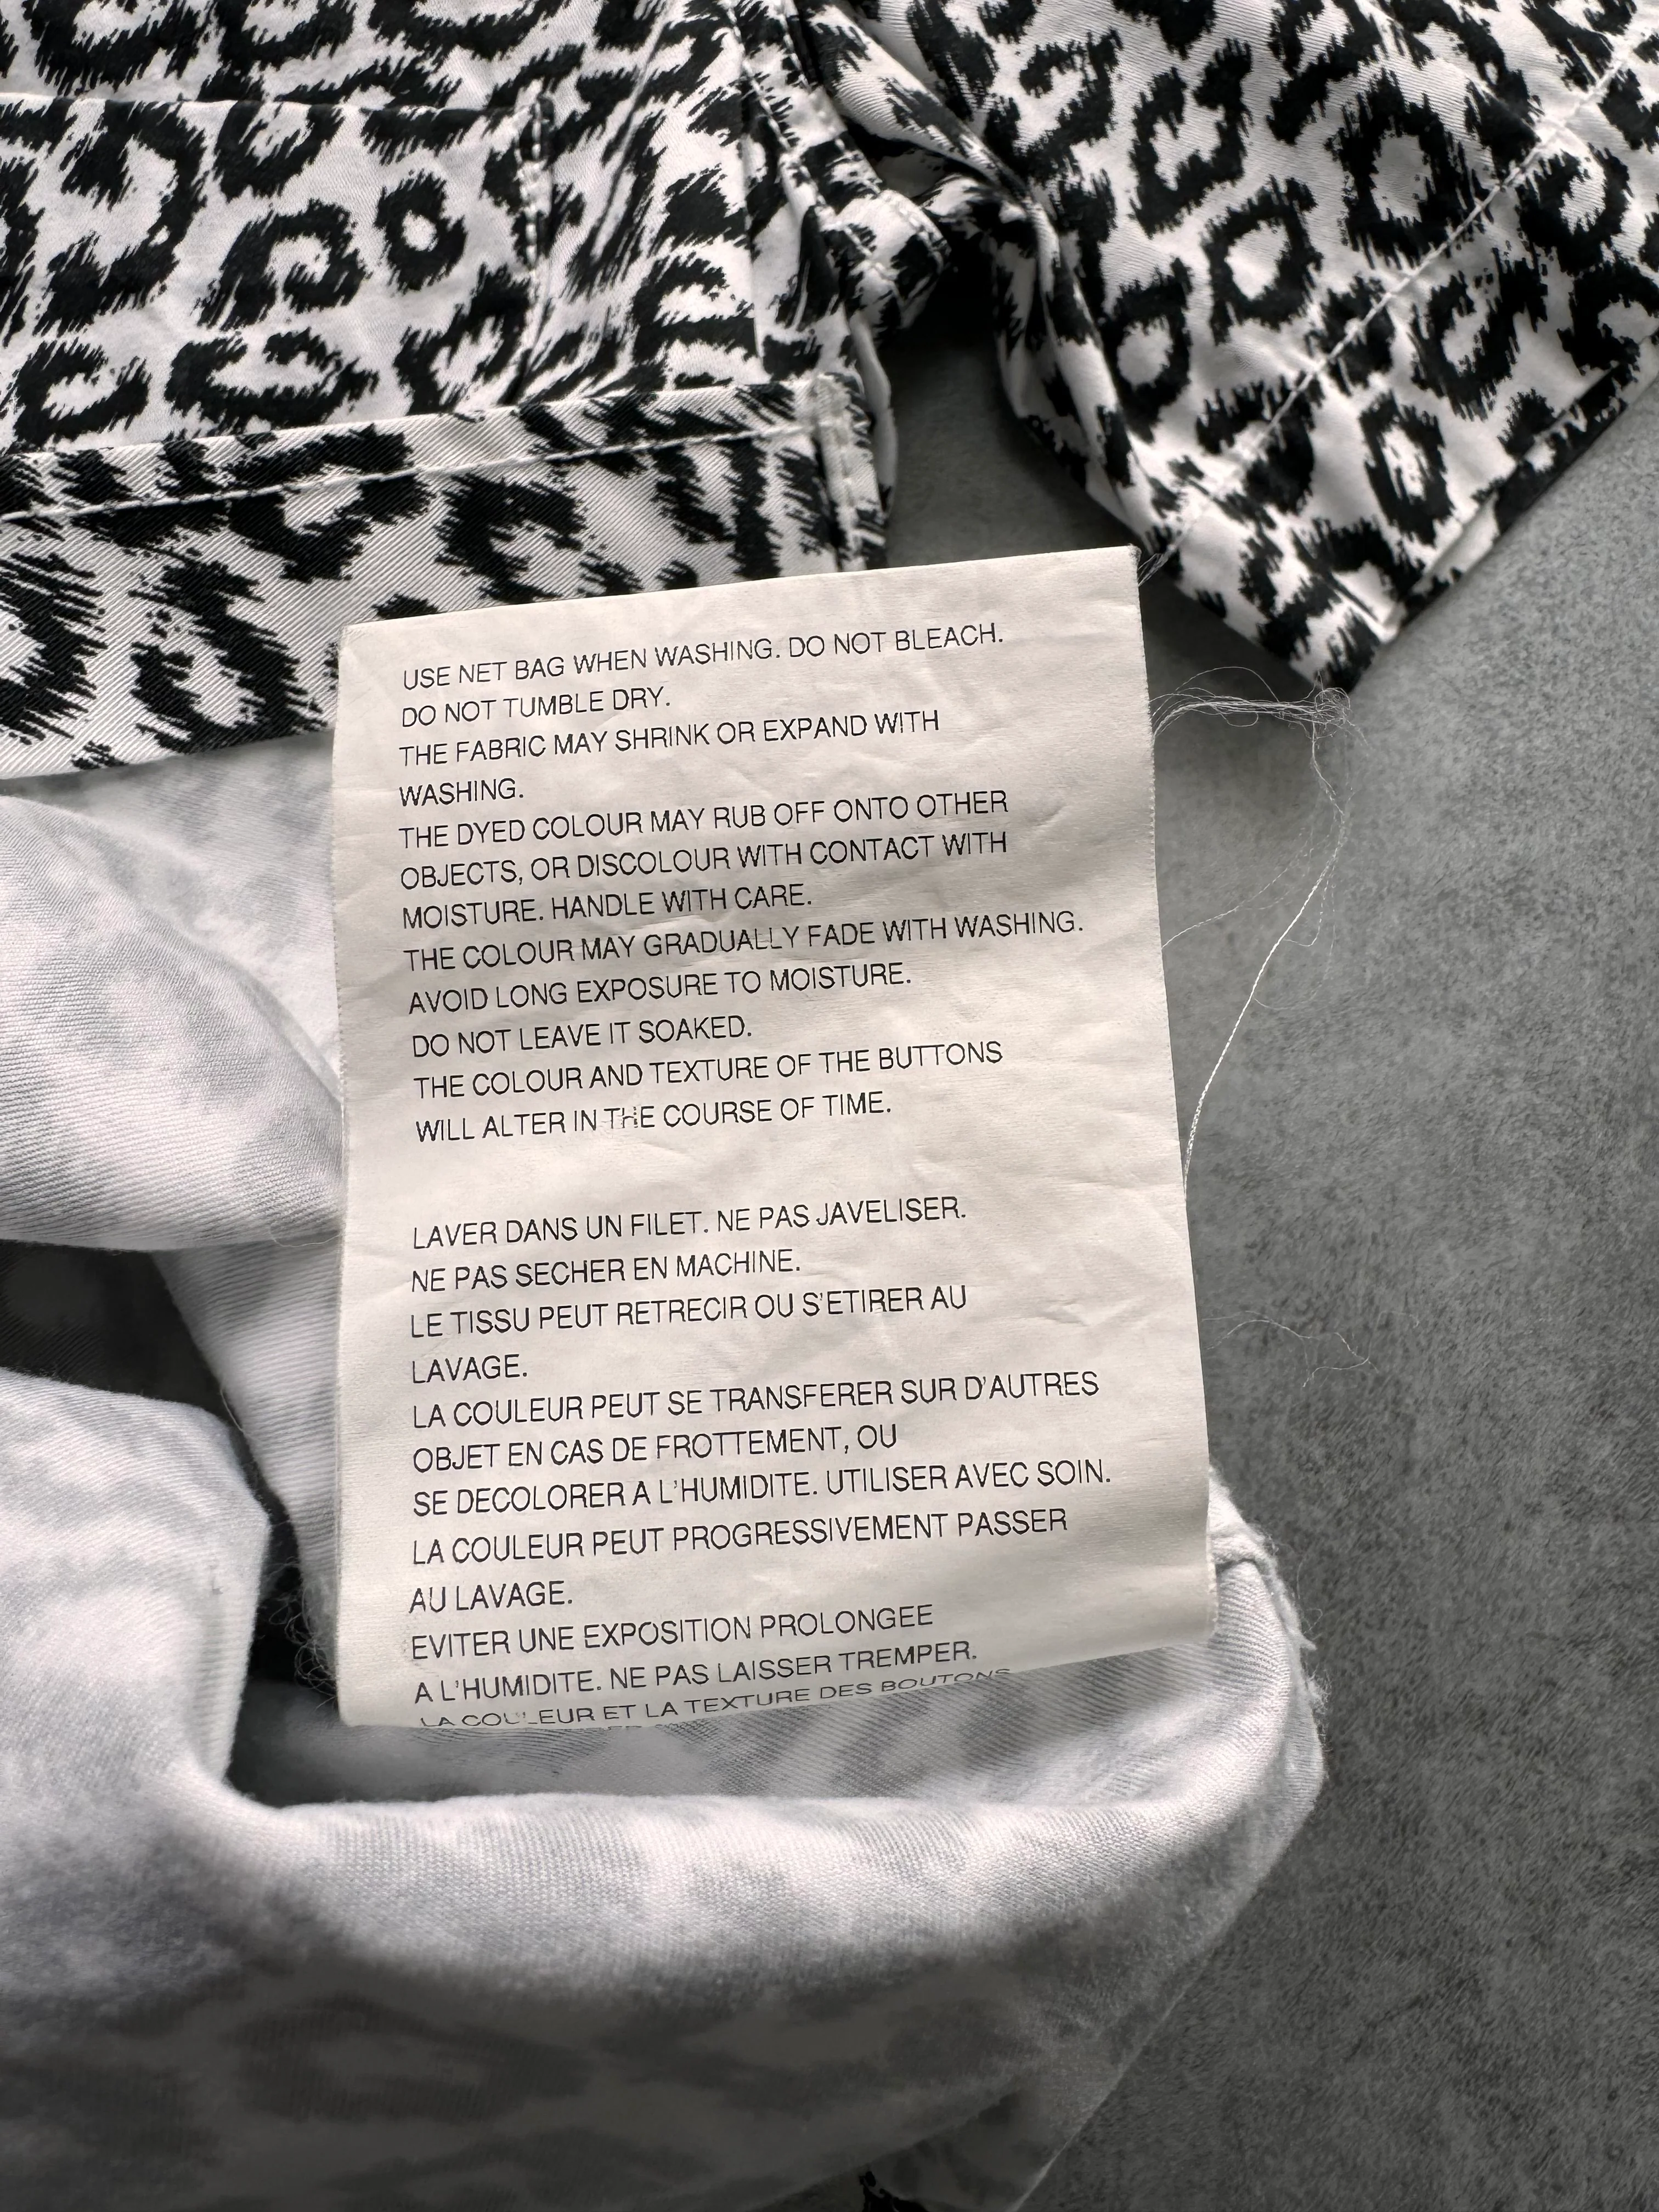 USE NET BAG WHEN WASHING. DO NOT BLEACH.
DO NOT TUMBLE DRY.
THE FABRIC MAY SHRINK OR EXPAND WITH
WASHING.
THE DYED COLOUR MAY RUB OFF ONTO OTHER
OBJECTS, OR DISCOLOUR WITH CONTACT WITH
MOISTURE. HANDLE WITH CARE.
THE COLOUR MAY GRADUALLY FADE WITH WASHING.
AVOID LONG EXPOSURE TO MOISTURE.
DO NOT LEAVE IT SOAKED.
THE COLOUR AND TEXTURE OF THE BUTTONS
WILL ALTER IN THE COURSE OF TIME.
LAVER DANS UN FILET. NE PAS JAVELISER.
NE PAS SECHER EN MACHINE.
LE TISSU PEUT RETRECIR OU S'ETIRER AU
LAVAGE.
LA COULEUR PEUT SE TRANSFERER SUR D'AUTRES
OBJET EN CAS DE FROTTEMENT, OU
SE DECOLORER A L'HUMIDITE. UTILISER AVEC SOIN.
LA COULEUR PEUT PROGRESSIVEMENT PASSER
AU LAVAGE.
EVITER UNE EXPOSITION PROLONGEE
A L'HUMIDITE. NE PAS LAISSER TREMPER.
LA COULEUR ET LA TEXTURE DES BOUTONS